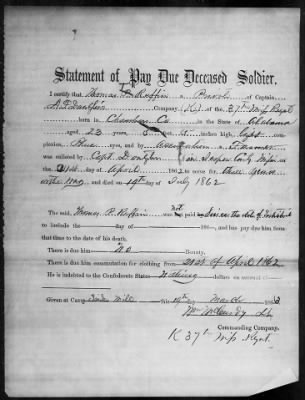 Statement of Pay Due Deceased Soldier.
I certify that Thomas P. Ruffin a Private
Company, (K) of the 37th Miss Regt
born in Chambers Co in the State of Alabama
aged, 23 years 5 feet inches high, light com-
plexion, Blue eyes, and by occupation a Farmer
was enlisted by Capt. in Jasper County Miss on
the 21st day of April 1862 to serve three years
or the war, and died on 19th day of July 1862
The said, Thomas P. Ruffin was not paid since the date of
to include the day of 186 , and has pay due him from
that time to the date of his death.
There is due him No Bounty.
There is due him commutation for clothing from 21st of April 1862
He is indebted to the Confederate States Nothing dollars on account of
Given at Camp Mill this 19th day March 1863
Wm Lt
Commanding Company.
K 37th Miss Regt.